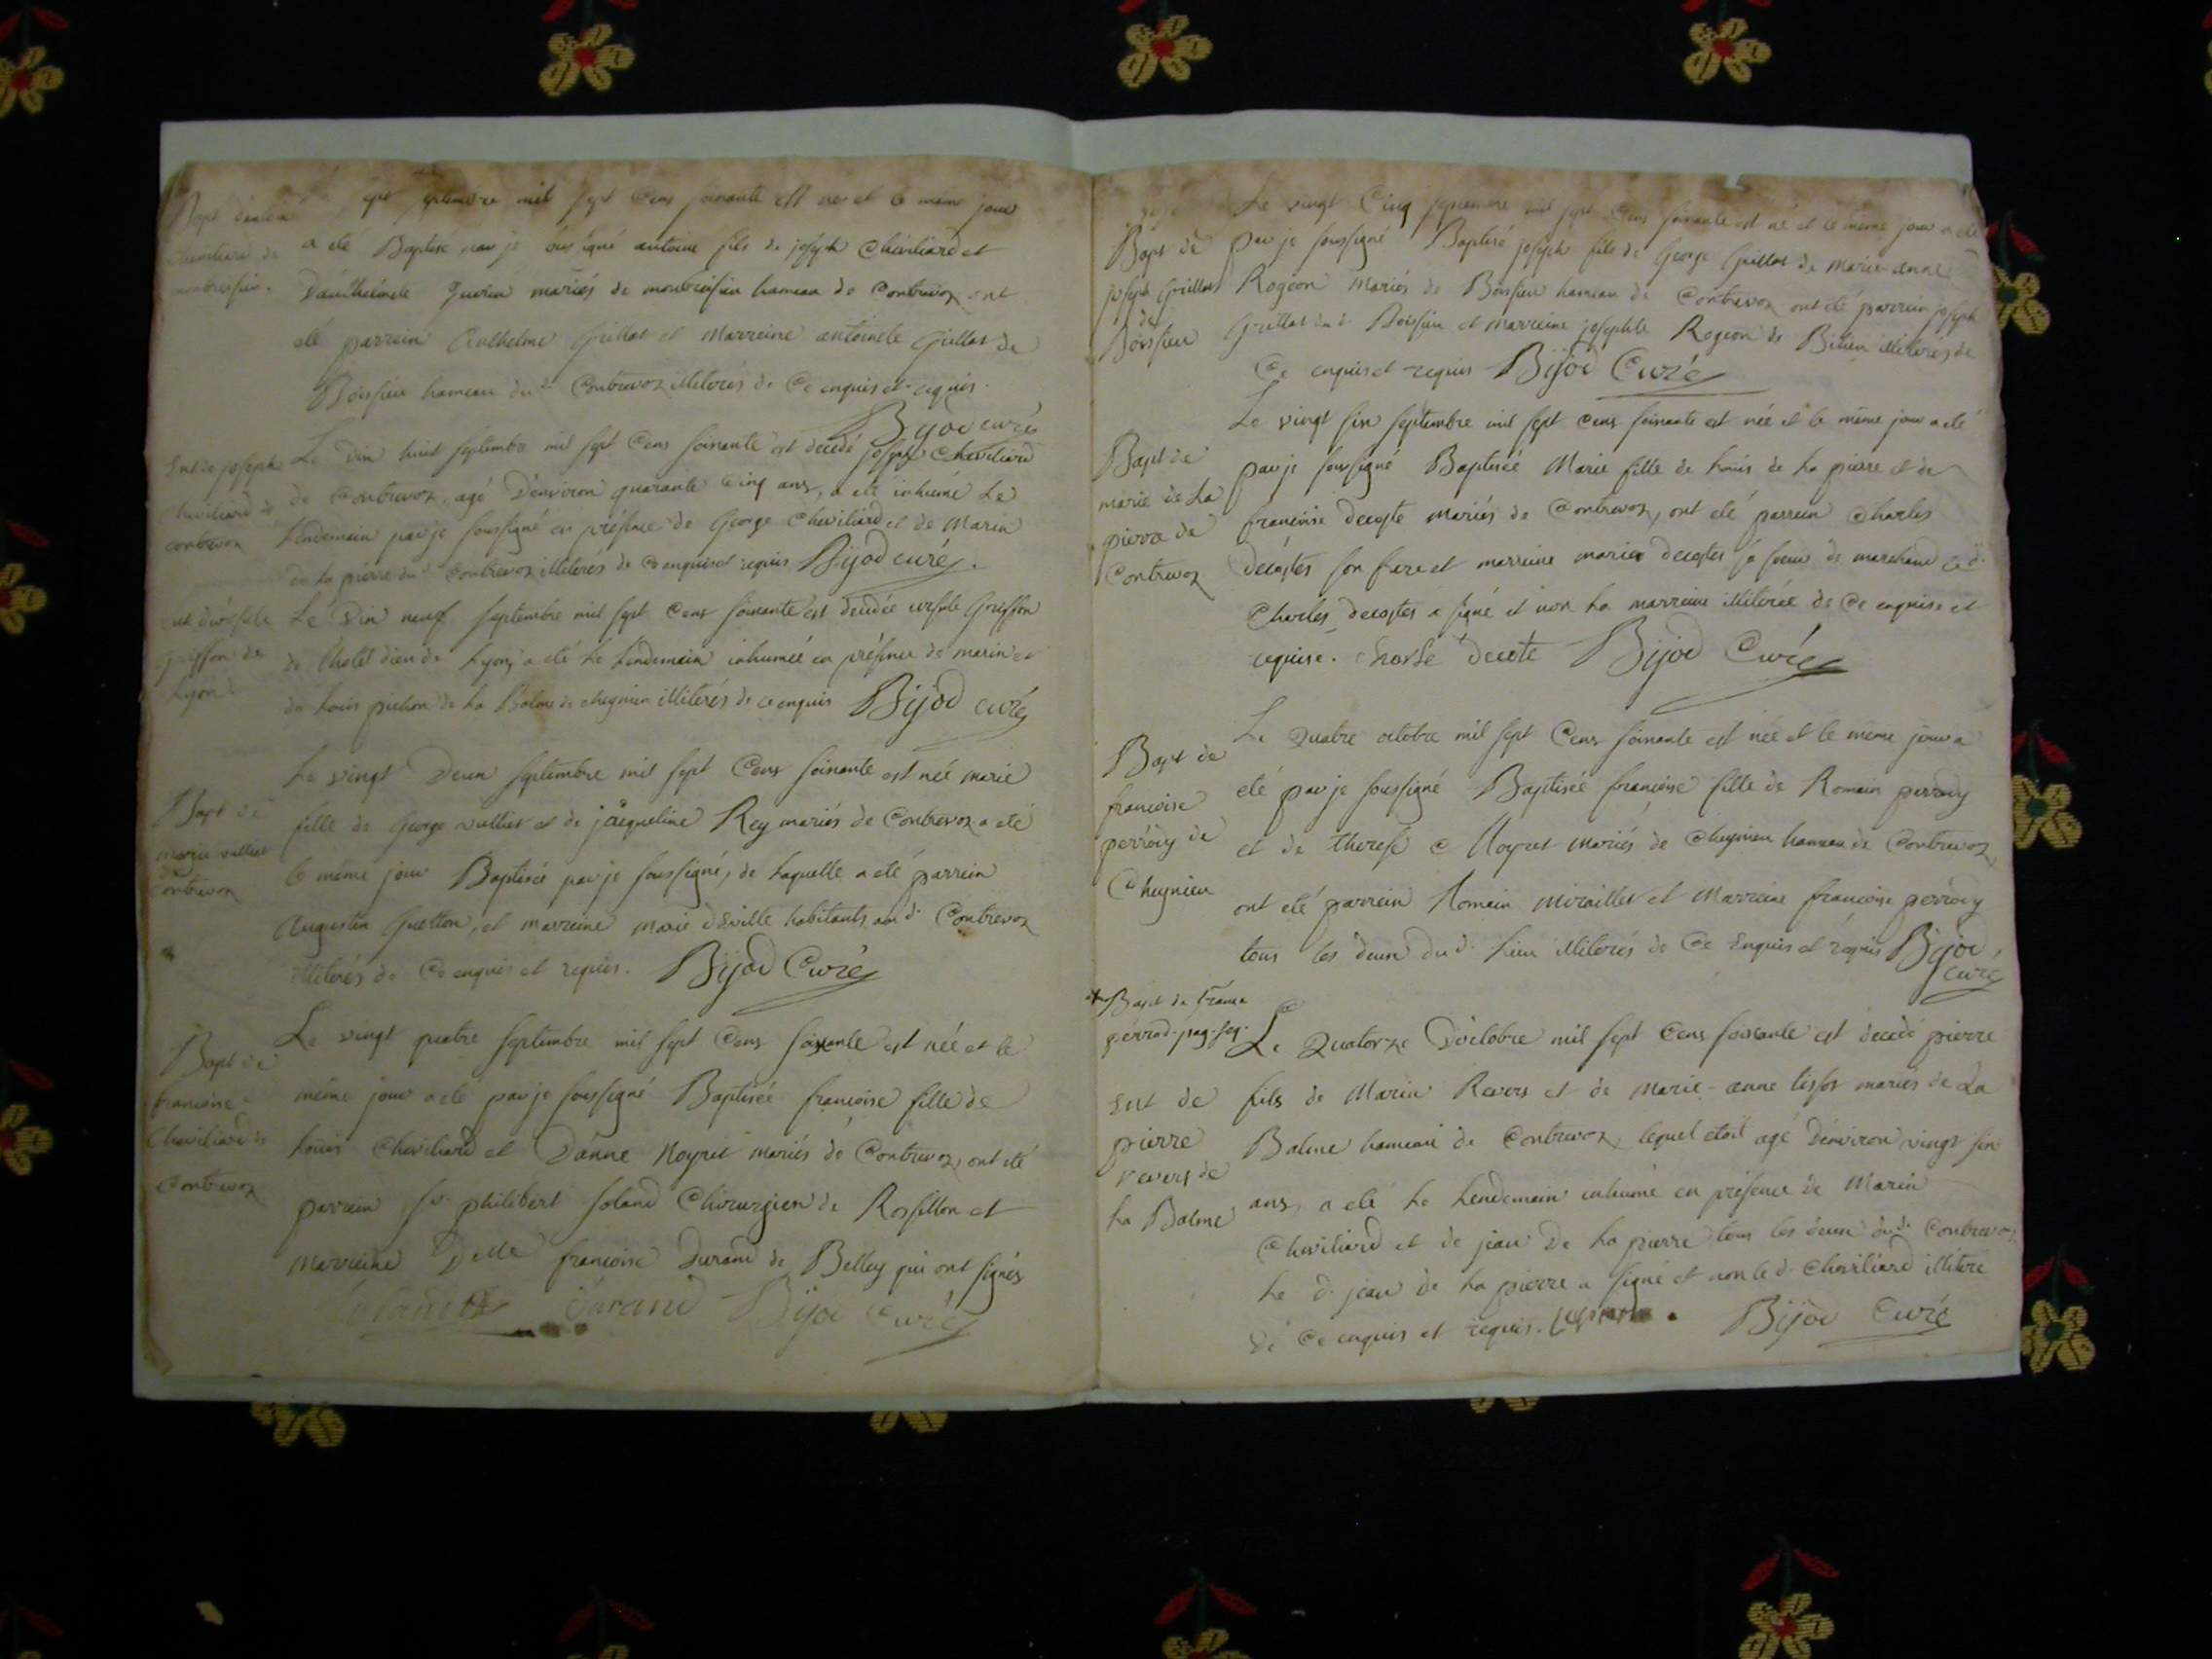 Bapt d'antoine
Cheviliard de
montbreisieu.
sept septembre mil sept Cens soixante est né et le même jour
a été Baptisé par je soussigné antoine fils de joseph Chevilliard et
D'anthelmete Guerin mariés de montbreisieu hameau de Contrevoz ont
été parrein Anthelme Grillot et Marreine antoinete Grillot de
Boissieu hameau dud. Contrevoz illiterés de Ce enquis et requis.
Bijod curé
Ent de joseph
Chevilliard de
contrevoz
Le Dix huit septembre mil sept Cens soixante est decedé joseph Chevilliard
de Contrevoz, agé D'environ quarante Cinq ans, a eté inhumé Le
Lendemain par je soussigné en présence de George Chevilliard et de Marin
de La pierre dud. Contrevoz illiterés de Ce enquis et requis Bijod curé.
Ent d'ursule
Griffon de
Lyon
Le Dix neuf septembre mil sept Cens soixante est decedée ursule Griffon
de l'hotel dieu de Lyon, a eté Le Lendemain inhumée en présence de marin et
de Louis pichon de La Balme de cheynieu illiterés de ce enquis Bijod curé
Bapt de
marie vulliet
de
contrevoz
Le vingt Deux septembre mil sept Cens soixante est née marie
fille de George vulliet et de jacqueline Rey mariés de Contrevoz a eté
le même jour Baptisée par je soussigné, de Laquelle a eté parrein
Augustin Guetton, et marreine marie deville habitants aud. Contrevoz
illiterés de Ce enquis et requis. Bijod Curé
Bapt de
francoise
Chevilliard de
Contrevoz
Le vingt quatre septembre mil sept Cens soixante est née et le
même jour a eté par je soussigné Baptisée francoise fille de
Louis Chevilliard et D'anne Noyret mariés de Contrevoz, ont eté
parrein sr. philibert soland Chirurgien de Rossillon et
Marreine Delle francoise Durand de Belley qui ont signés
Durand Bijod Curé
Bapt de
joseph Grillot
de
Boissieu
Le vingt Cinq septembre mil sept Cens soixante est né et le même jour a eté
par je soussigné Baptisé joseph fils de George Grillot de Marie-anne
Rogeon Mariés de Boissieu hameau de Contrevoz ont eté parrein joseph
Grillot dud. Boissieu et Marreine josephte Rogeon de Bilieu illiterés de
Ce enquis et requis Bijod Curé
Bapt de
marie de La
pierre de
Contrevoz
Le vingt six septembre mil sept Cens soixante est née et le même jour a eté
par je soussigné Baptisée Marie fille de Louis de La pierre et de
francoise decoste mariés de Contrevoz, ont eté parrein Charles
decostes son frere et marreine marie decostes sa soeur de marchand led.
Charles decostes a signé et non La marreine illiterée de Ce enquise et
requise. charle decote Bijod Curé
Bapt de
francoise
perrody de
Cheynieu
Le Quatre octobre mil sept Cens soixante est née et le même jour a
eté par je soussigné Baptisée francoise fille de Romain perrody
et de therese Noyret mariés de Cheynieu hameau de Contrevoz,
ont eté parrein Romain Miraillet et Marreine francoise perrody
tous les deux dud. Lieu illiterés de Ce Enquis et requis Bijod
curé
Bapt de France
perrod. pag. seq.
Ent de
pierre
revers de
La Balme
Le Quatorze D'octobre mil sept Cens soixante est decedé pierre
fils de Marin Revers et de Marie-anne tissot mariés de La
Balme hameau de Contrevoz, lequel etoit agé D'environ vingt six
ans, a eté Le Lendemain inhumé en présence de Marin
Chevilliard et de jean De La pierre tous les deux dud. Contrevoz,
Le d. jean de La pierre a signé et non le d. Chevilliard illiteré
de Ce enquis et requis. Bijod Curé